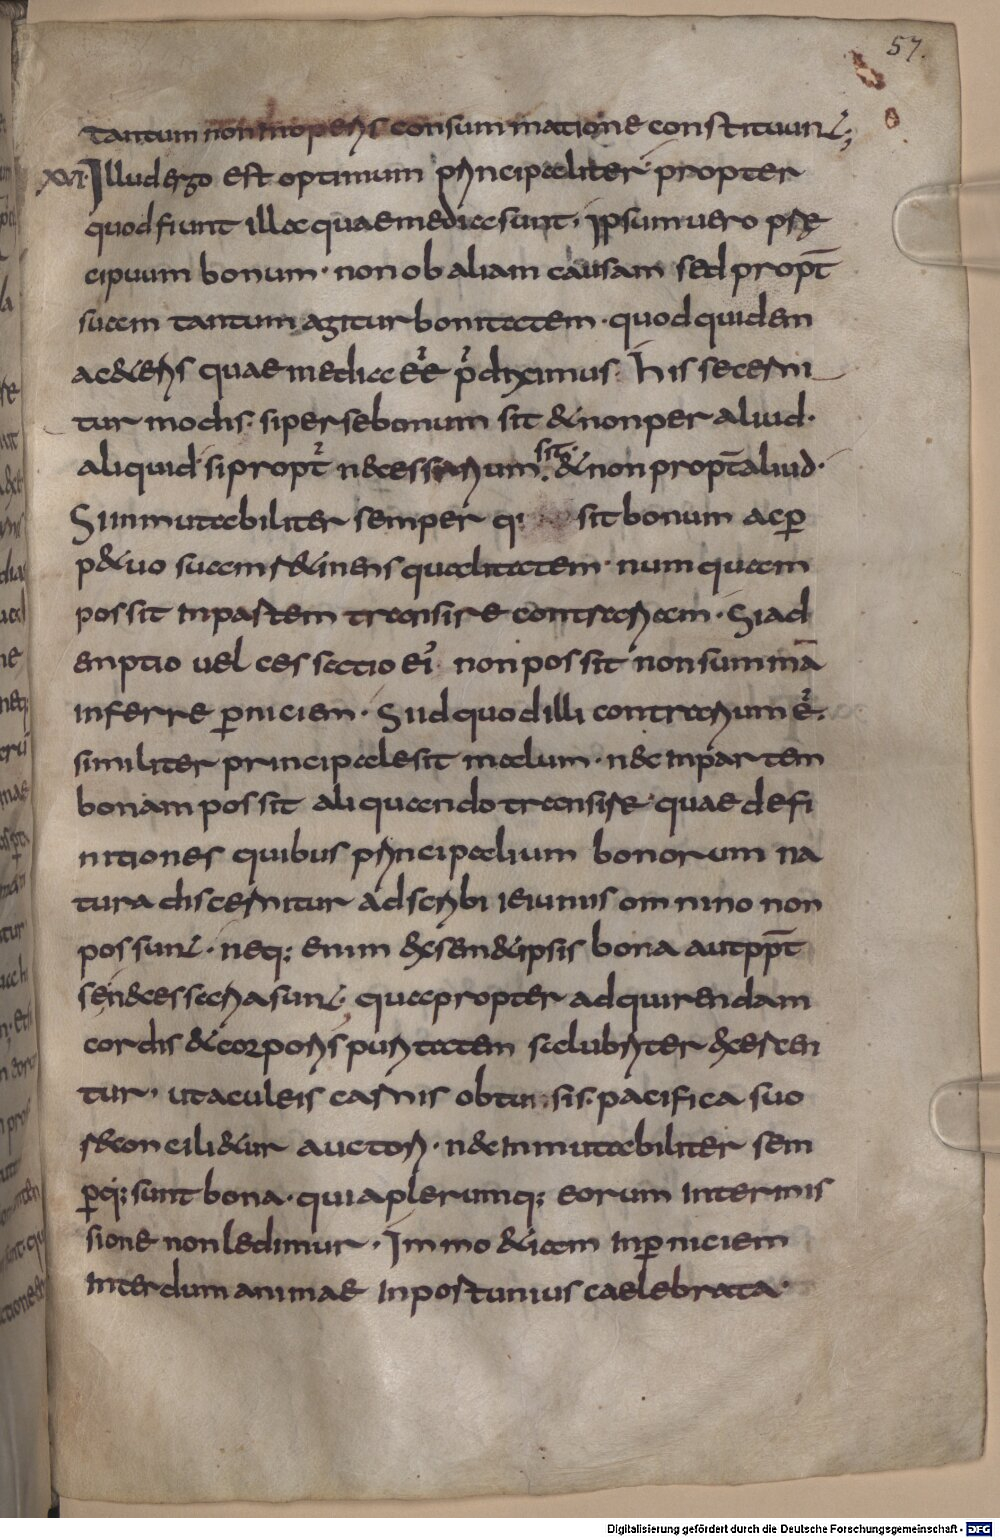 57.
tantum non in operis consummatione constituunt;
XVI. Illud ergo est optimum principaliter propter
quod fiunt illa quae media sunt. ipsum uero prę
cipuum bonum. non ob aliam causam sed propt̄
suam tantum agitur bonitatem. quod quidem
a ceteris quae media eē p̄diximus. his secerni
tur modis. si per se bonum sit & non per aliud.
aliquid si propt̄ necessarium sit. & non propt̄ aliud.
Si inmutabiliter semper q; sit bonum ac ꝑ
petuo suam retinens qualitatem. numquam
possit in partem transire contrariam. Si ad
emptio uel cessatio ei' non possit non summā
inferre ꝑniciem. Si id quod illi contrarium ē.
similiter principale sit malum. nec in partem
bonam possit aliquando transire. quae defi
nitiones quibus principalium bonorum na
tura discernitur adscribi ieiuniis omnino non
possunt. neq; enim & semetipsis bona aut ppt̄
se necessaria sunt; qua propter adquirendam
cordis & corporis puritatem salubriter exercen
tur. ut aculeis carnis obtunsis. pacifica suo
reconcilietur auctori. nec inmutabiliter sem
ꝑq; sunt bona. quia plerumq; eorum intermis
sione non ledimur. Immo etiam in ꝑniciem
interdum animae inportunius caelebrata.
Digitalisierung gefördert durch die Deutsche Forschungsgemeinschaft - DFG